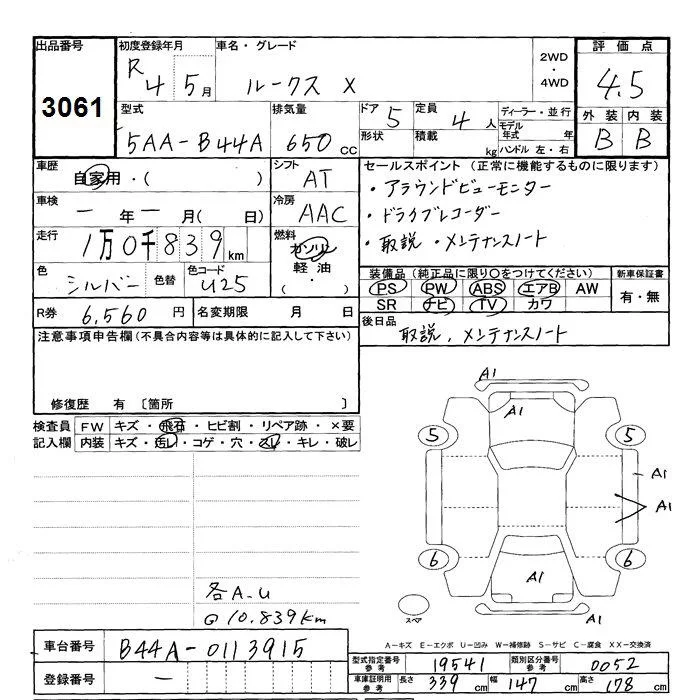 出品番号 初度登録年月 車名・グレード 評価点
3061 R4 5月 ルークス X 2WD・4WD 4.5
型式 排気量 ドア 5 定員 4人 ディーラー・並行 外装 内装
5AA-B44A 650cc 形状 積載 kg モデル年式 年 B B
ハンドル 左・右
車歴 自家用・( ) シフト AT セールスポイント (正常に機能するものに限ります)
車検 ー年ー月( 日) 冷房 AAC ・アラウンドビューモニター
・ドライブレコーダー
走行 1万0千839km 燃料 ガソリン 軽油・ ・取説・メンテナンスノート
色 シルバー 色替 色コード U25 装備品 (純正品に限り○をつけてください) 新車保証書
PS PW ABS エアB AW 有・無
SR ナビ TV カワ
R券 6,560円 名変期限 月 日 後日品 取説、メンテナンスノート
注意事項申告欄 (不具合内容等は具体的に記入して下さい)
修復歴 有 〔箇所 〕
検査員 FW キズ・飛石・ヒビ割・リペア跡・×要
記入欄 内装 キズ・汚れ・コゲ・穴・スレ・キレ・破レ
A1
A1
5 5
A1
A1
6 6
A1
A1
スペア
各A.U
@10.839km
A-キズ E-エクボ U-凹み W-補修跡 S-サビ C-腐食 XX-交換済
車台番号 B44A-0113915 型式指定番号 参考 19541 類別区分番号 参考 0052
登録番号 ー 車庫証明用 参考 長さ 339cm 幅 147cm 高さ 178cm